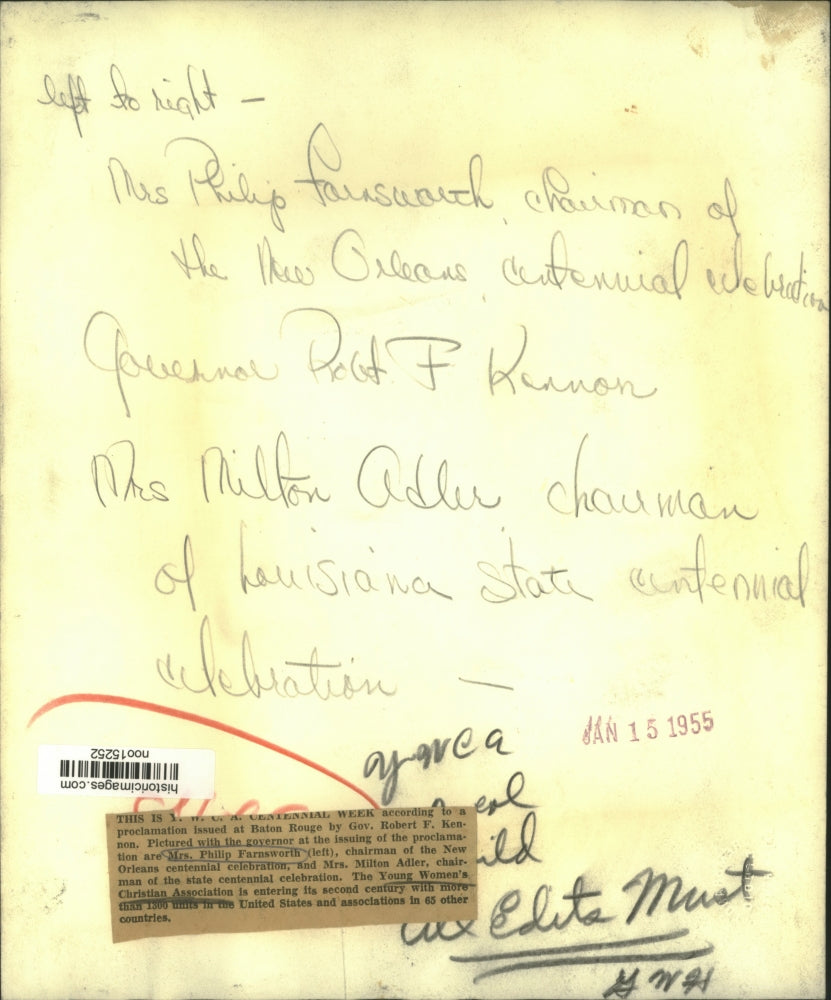 left to right –
Mrs Philip Farnsworth, chairman of
the New Orleans centennial celebration
Governor Robt F Kennon
Mrs Milton Adler chairman
of Louisiana State centennial
celebration –
JAN 15 1955
YWCA
noo15252
historicimages.com
THIS IS Y. W. C. A. CENTENNIAL WEEK according to a
proclamation issued at Baton Rouge by Gov. Robert F. Ken-
non. Pictured with the governor at the issuing of the proclama-
tion are Mrs. Philip Farnsworth (left), chairman of the New
Orleans centennial celebration, and Mrs. Milton Adler, chair-
man of the state centennial celebration. The Young Women's
Christian Association is entering its second century with more
than 1300 units in the United States and associations in 65 other
countries.
All Edits Must